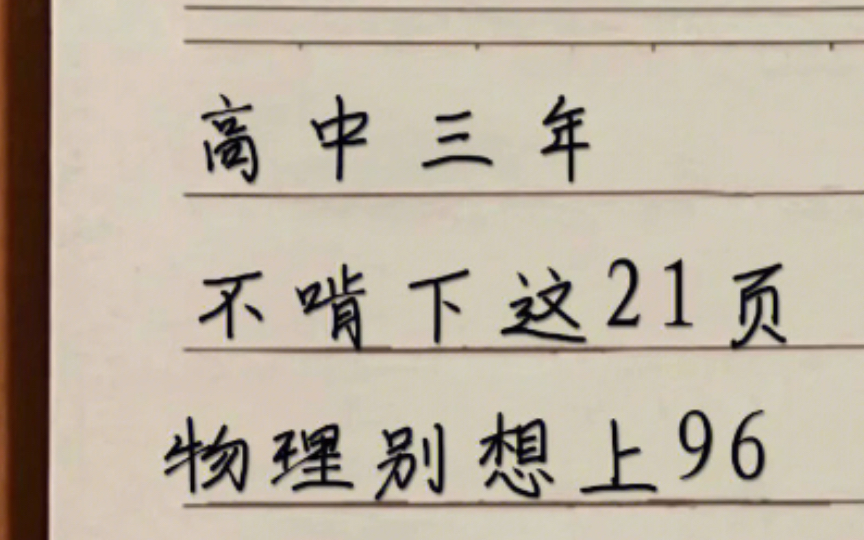 高中三年
不啃下这21页
物理别想上96